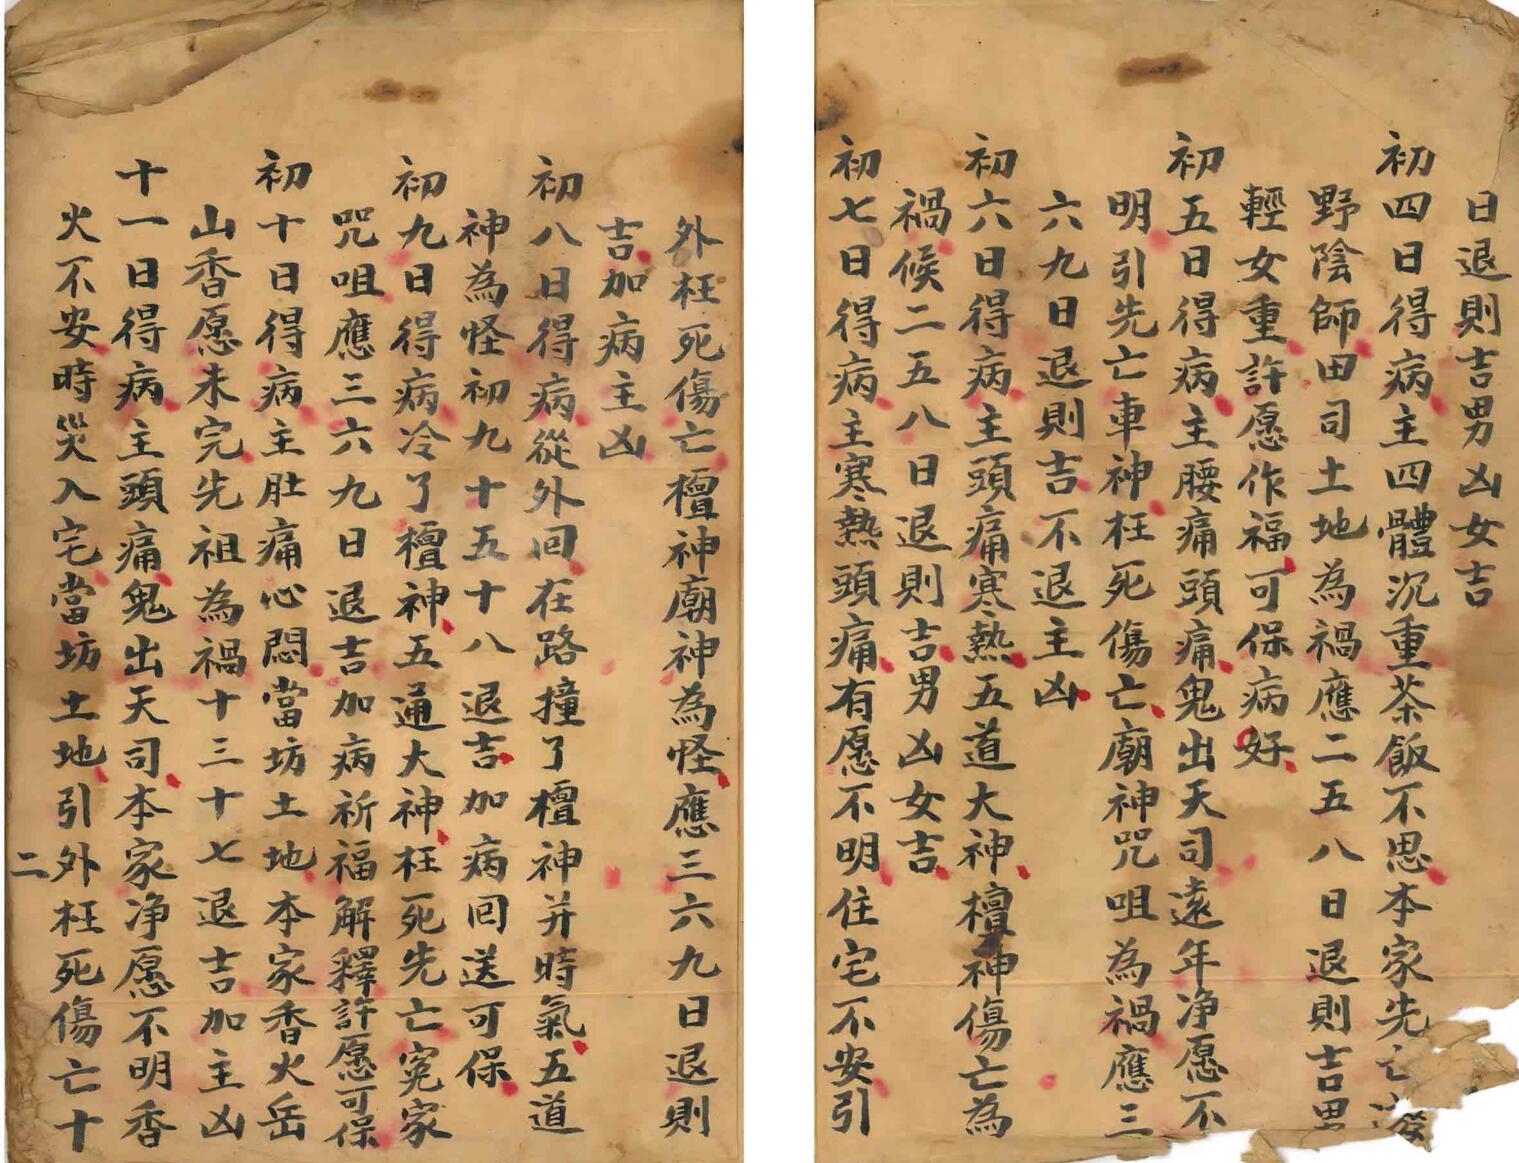 日退則吉男凶女吉
初四日得病主四體沉重茶飯不思本家先亡
野陰師田司土地為禍應二五八日退則吉男
輕女重許愿作福可保病好
初五日得病主腰痛頭痛鬼出天司遠年净愿不
明引先亡車神枉死傷亡廟神咒咀為禍應三
六九日退則吉不退主凶
初六日得病主頭痛寒熱五道大神檀神傷亡為
禍候二五八日退則吉男凶女吉
初七日得病主寒熱頭痛有愿不明住宅不安引
外枉死傷亡檀神廟神為怪應三六九日退則
吉加病主凶
初八日得病從外回在路撞了檀神并時氣五道
神為怪初九十五十八退吉加病回送可保
初九日得病冷了檀神五通大神枉死先亡冤家
咒咀應三六九日退吉加病祈福解釋許愿可保
初十日得病主肚痛心悶當坊土地本家香火岳
山香愿未完先祖為禍十三十七退吉加主凶
十一日得病主頭痛鬼出天司本家净愿不明香
火不安時災入宅當坊土地引外枉死傷亡十
二